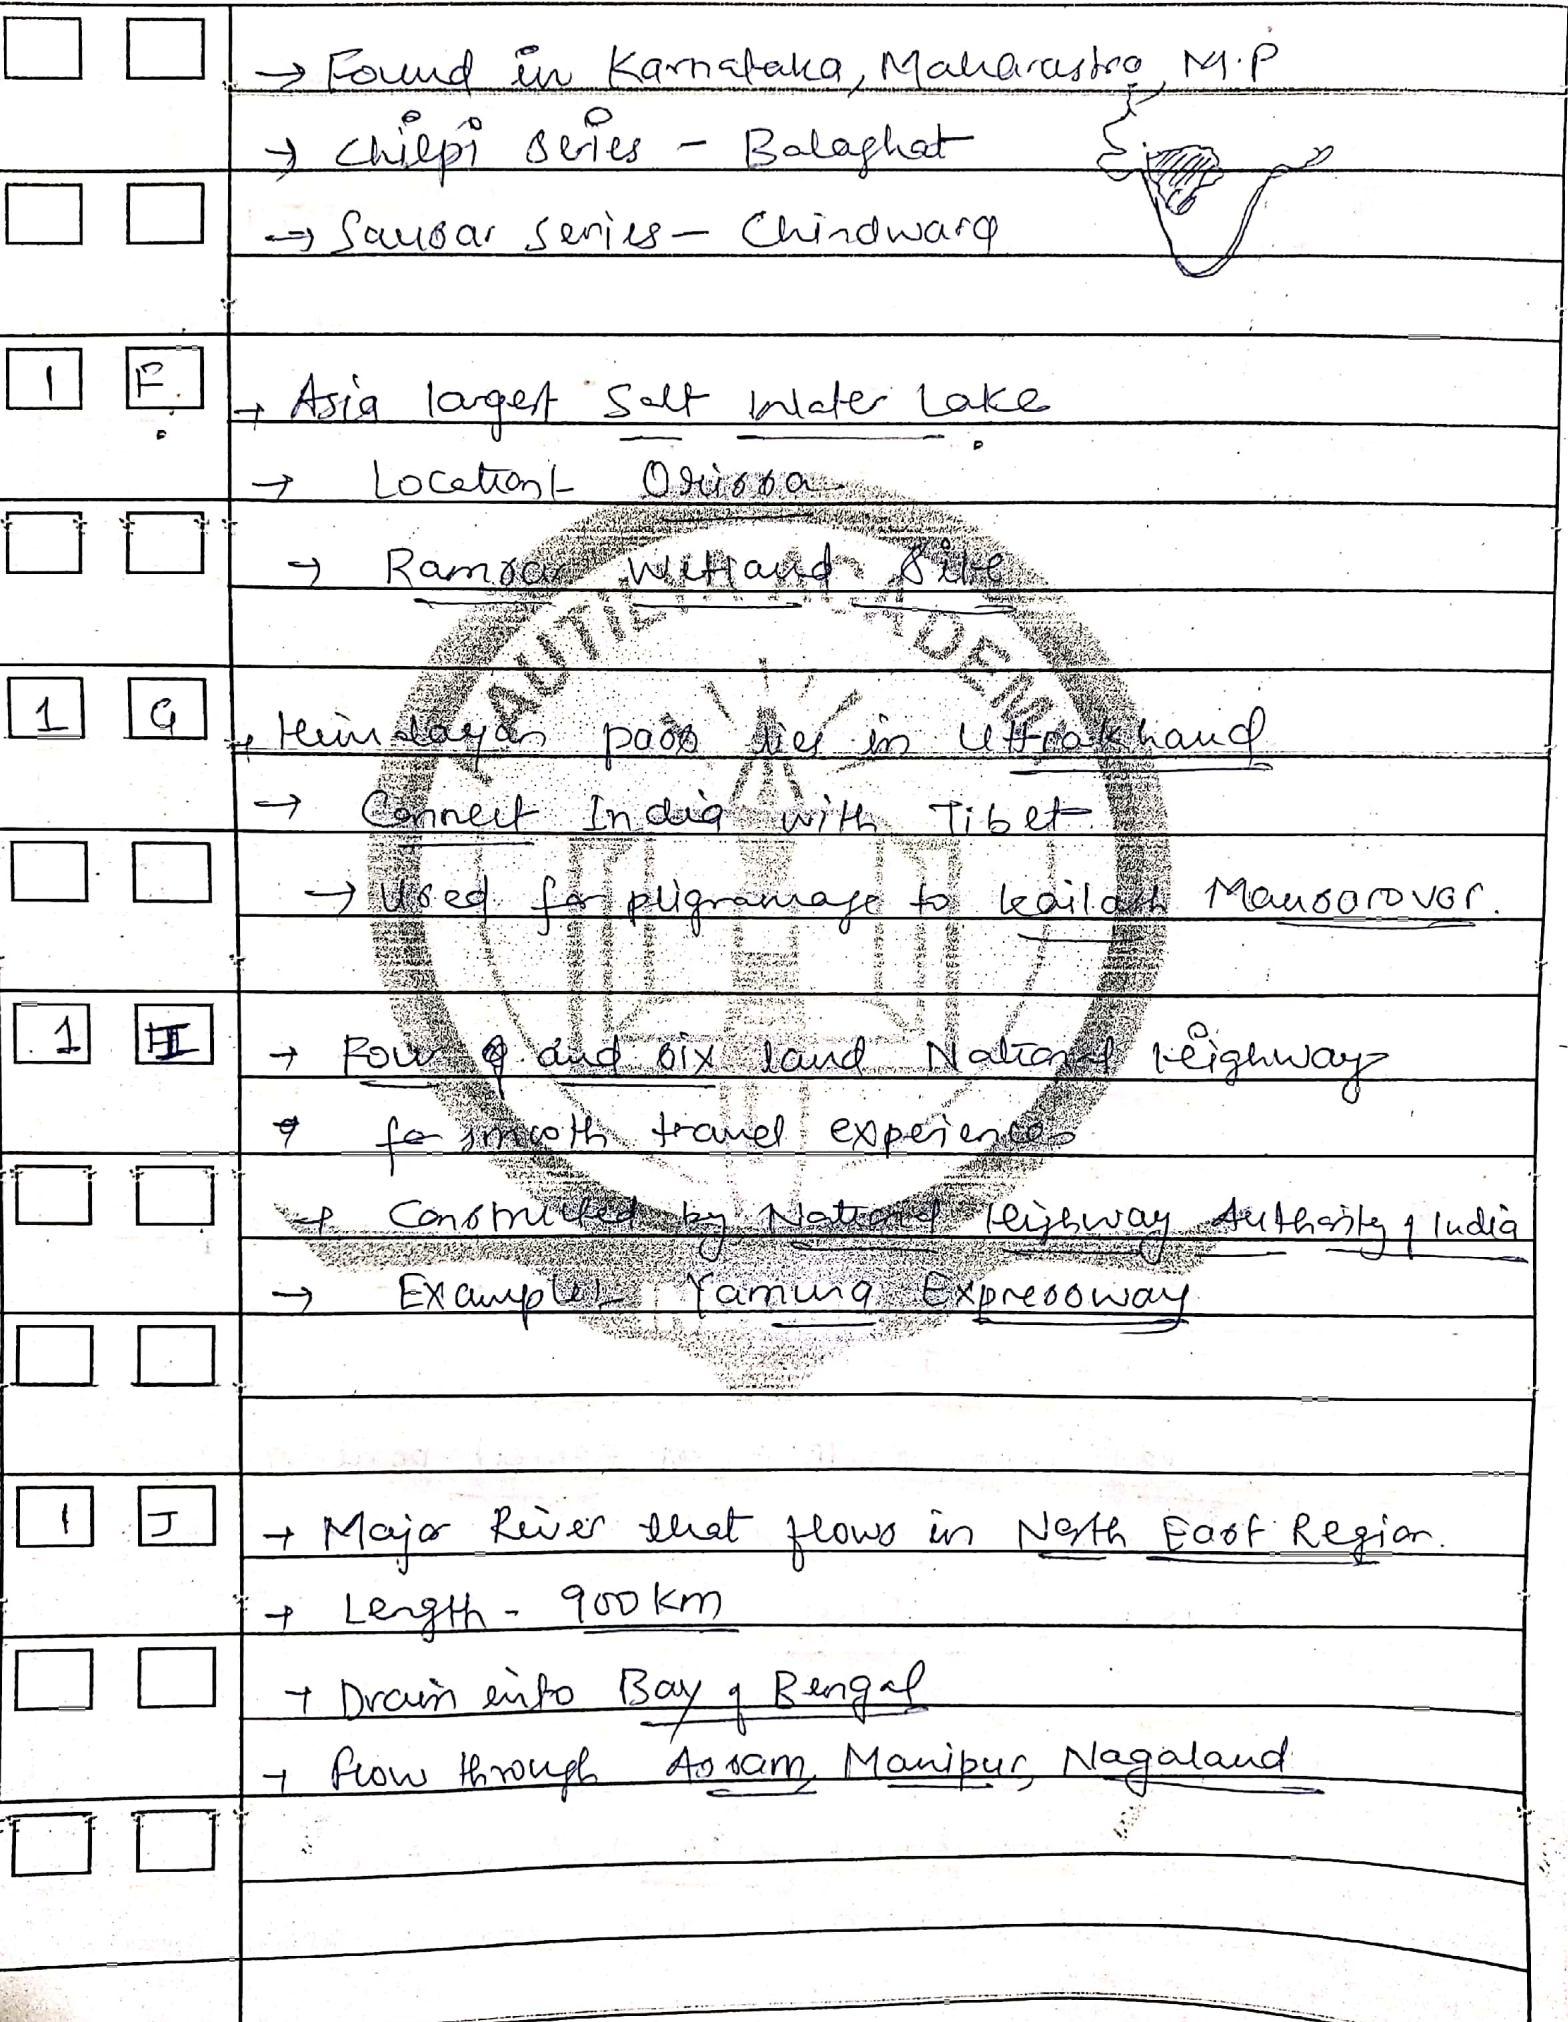 → Found in Karnataka, Maharastra, M.P
→ Chilpi series - Balaghat
→ Sausar series - Chindwara
1 F. → Asia largest Salt Water Lake
→ Location:- Orissa
→ Ramsar Wetland Site
KAUTILYA ACADEMY
1 G → Himalayan pass lies in Uttrakhand
→ Connect India with Tibet
→ Used for pligramage to kailash Mansarovar.
1 I → Four and six land National Heighway
→ for smooth travel experiences
→ Constructed by National Heighway Authority of India
→ Example:- Yamuna Expressway
1 J → Major River that flows in North East Region.
→ Length - 900 km
→ Drain into Bay of Bengal
→ flow through Assam, Manipur, Nagaland